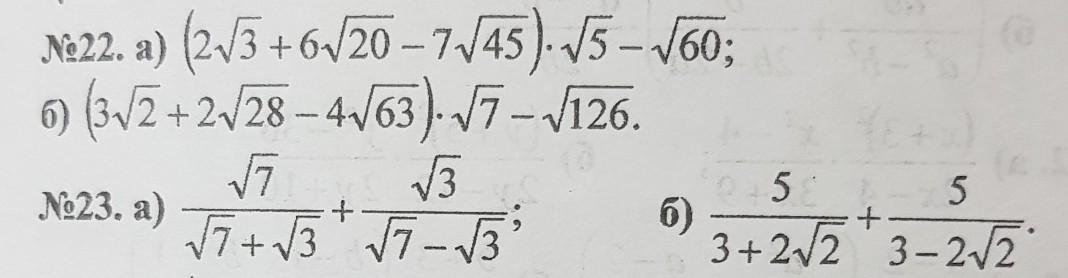 №22. а) (2√3 + 6√20 − 7√45)·√5 − √60;
б) (3√2 + 2√28 − 4√63)·√7 − √126.
№23. а) √7/(√7 + √3) + √3/(√7 − √3); б) 5/(3 + 2√2) + 5/(3 − 2√2).